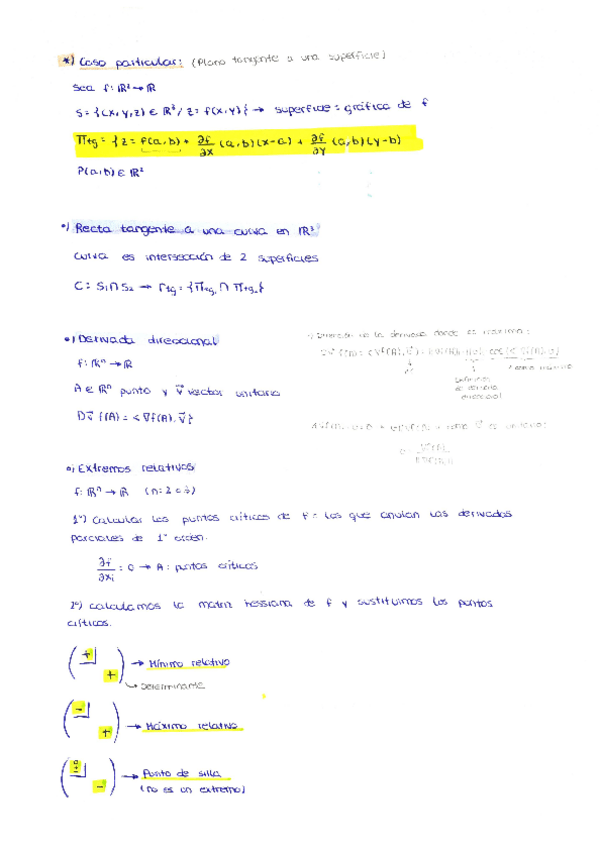 *) Caso particular: (Plano tangente a una superficie)
Sea f: ℝ² → ℝ
S = {(x, y, z) ∈ ℝ³ / z = f(x, y)} → superficie = gráfica de f
Πtg = {z = f(a, b) + ∂f/∂x (a, b)(x-a) + ∂f/∂y (a, b)(y-b)
P(a, b) ∈ ℝ²
•) Recta tangente a una curva en ℝ³
curva es intersección de 2 superficies
C: S₁∩S₂ → rtg = {Πtg₁ ∩ Πtg₂}
•) Derivada direccional
f: ℝⁿ → ℝ
A ∈ ℝⁿ punto y v⃗ vector unitario
Dv⃗ f(A) = < ∇f(A), v⃗ >
•) Dirección en la derivada donde es máxima:
Definición de derivada direccional
•) Extremos relativos
f: ℝⁿ → ℝ (n = 2 ó 3)
1º) Calcular los puntos críticos de f: los que anulan las derivadas
parciales de 1º orden.
∂f/∂xi = 0 → A: puntos críticos
2º) Calculamos la matriz hessiana de f y sustituimos los puntos
críticos.
( + + ) → Mínimo relativo
↳ Determinante
( - + ) → Máximo relativo
→ Punto de silla
(no es un extremo)